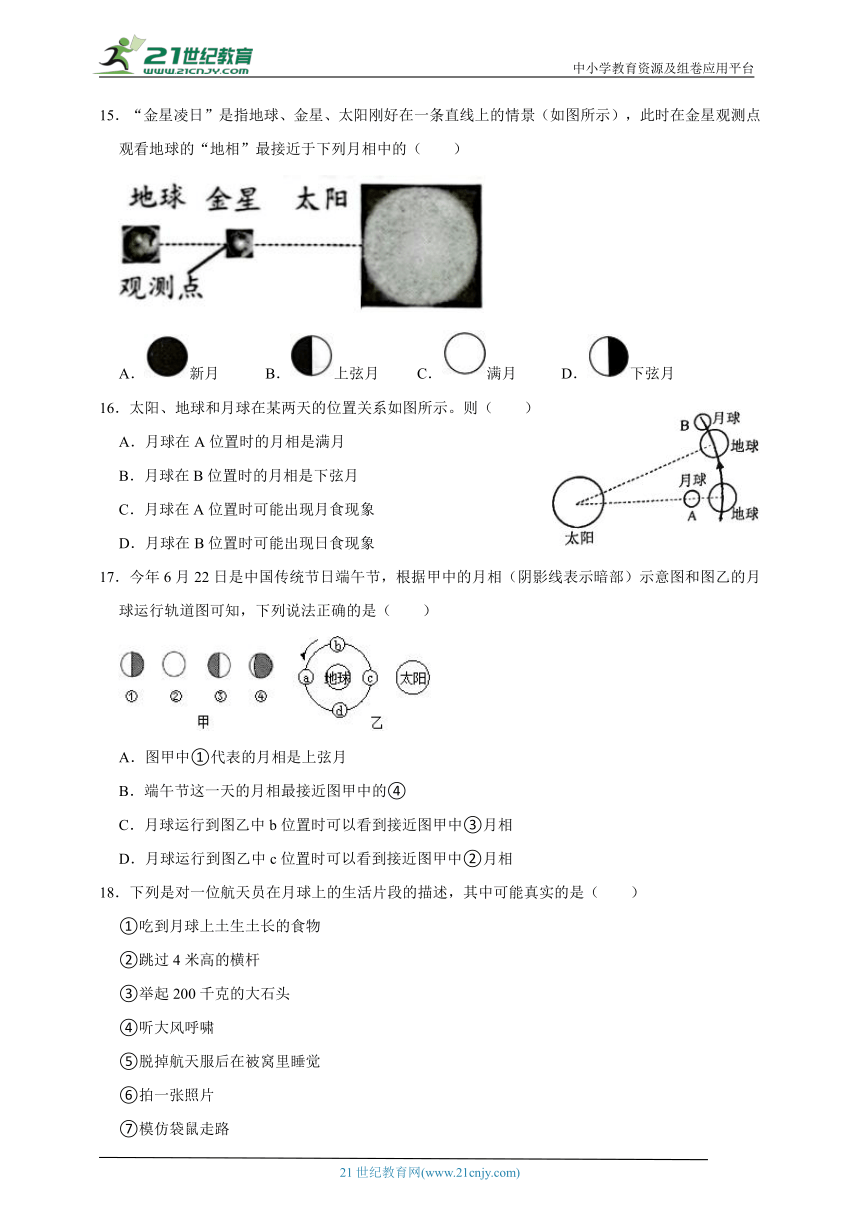 21世纪教育
www.21cnjy.com
中小学教育资源及组卷应用平台
15．“金星凌日”是指地球、金星、太阳刚好在一条直线上的情景（如图所示），此时在金星观测点
观看地球的“地相”最接近于下列月相中的（　　）
地球 金星 太阳
观测点
A．新月 B．上弦月 C．满月 D．下弦月
16．太阳、地球和月球在某两天的位置关系如图所示。则（　　）
A．月球在A位置时的月相是满月
B．月球在B位置时的月相是下弦月
C．月球在A位置时可能出现月食现象
D．月球在B位置时可能出现日食现象
B 月球
地球
月球
A
地球
太阳
17．今年6月22日是中国传统节日端午节，根据甲中的月相（阴影线表示暗部）示意图和图乙的月
球运行轨道图可知，下列说法正确的是（　　）
① ② ③ ④
甲
b
a 地球 c 太阳
d
乙
A．图甲中①代表的月相是上弦月
B．端午节这一天的月相最接近图甲中的④
C．月球运行到图乙中b位置时可以看到接近图甲中③月相
D．月球运行到图乙中c位置时可以看到接近图甲中②月相
18．下列是对一位航天员在月球上的生活片段的描述，其中可能真实的是（　　）
①吃到月球上土生土长的食物
②跳过4米高的横杆
③举起200千克的大石头
④听大风呼啸
⑤脱掉航天服后在被窝里睡觉
⑥拍一张照片
⑦模仿袋鼠走路
21世纪教育网(www.21cnjy.com)